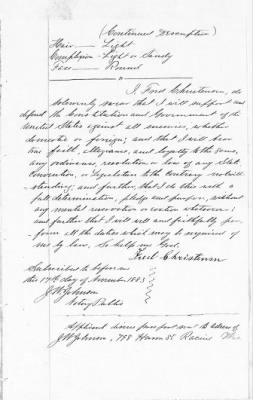 (Continued Description)
Hair — Light
Complexion - Light or Sandy
Face — Round
I, Fred Christensen, do
solemnly swear that I will support and
defend the Constitution and Government of the
United States against all enemies, whether
domestic or foreign; and that I will bear
true faith, allegiance, and loyalty to the same,
any ordinance, resolution or law of any State,
Convention, or Legislation to the contrary notwith-
standing; and further, that I do this with a
full determination, pledge and purpose, without
any mental reservation or evasion whatsoever;
and further that I will well and faithfully per-
form all the duties which may be required of
me by law. So help me God.
Fred Christensen
Subscribed to before me
this 19th day of November 1883
J.W. Johnson
Notary Public
Applicant desires passport sent to address of
J.W. Johnson, 798 St Racine Wis